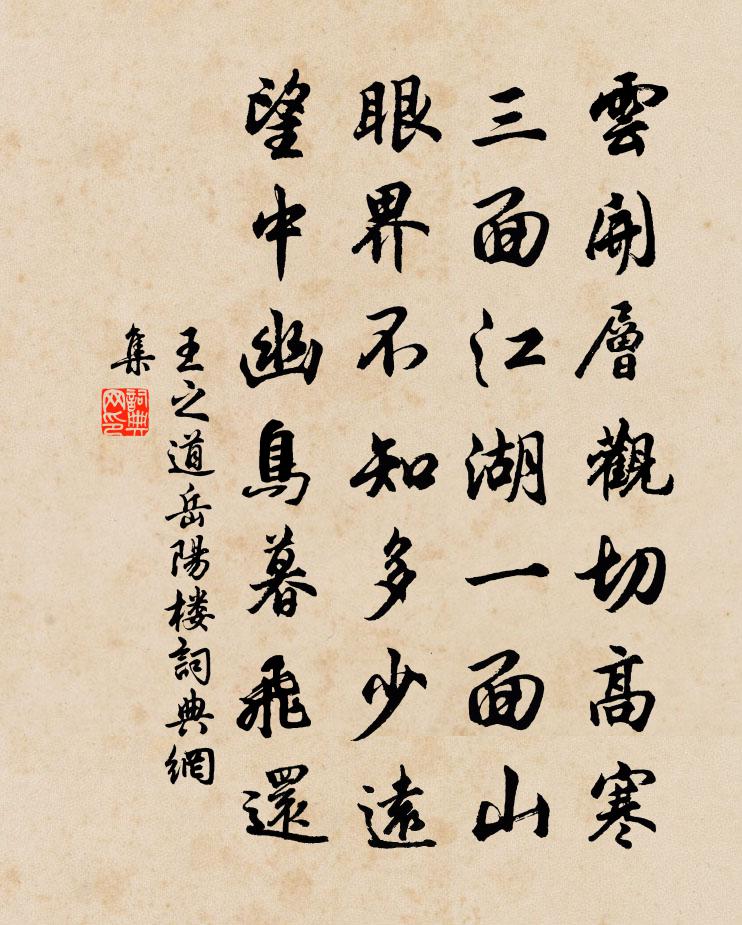 雲開層觀切高寒
三面江湖一面山
眼界不知多少遠
望中幽鳥暮飛還
王之道岳陽楼詞典網
集
詞典
网印